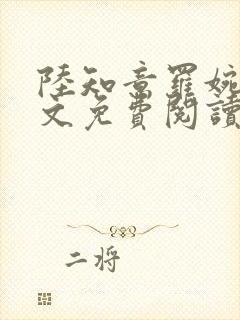 陸知章羅婉
文免費閱讀
二将